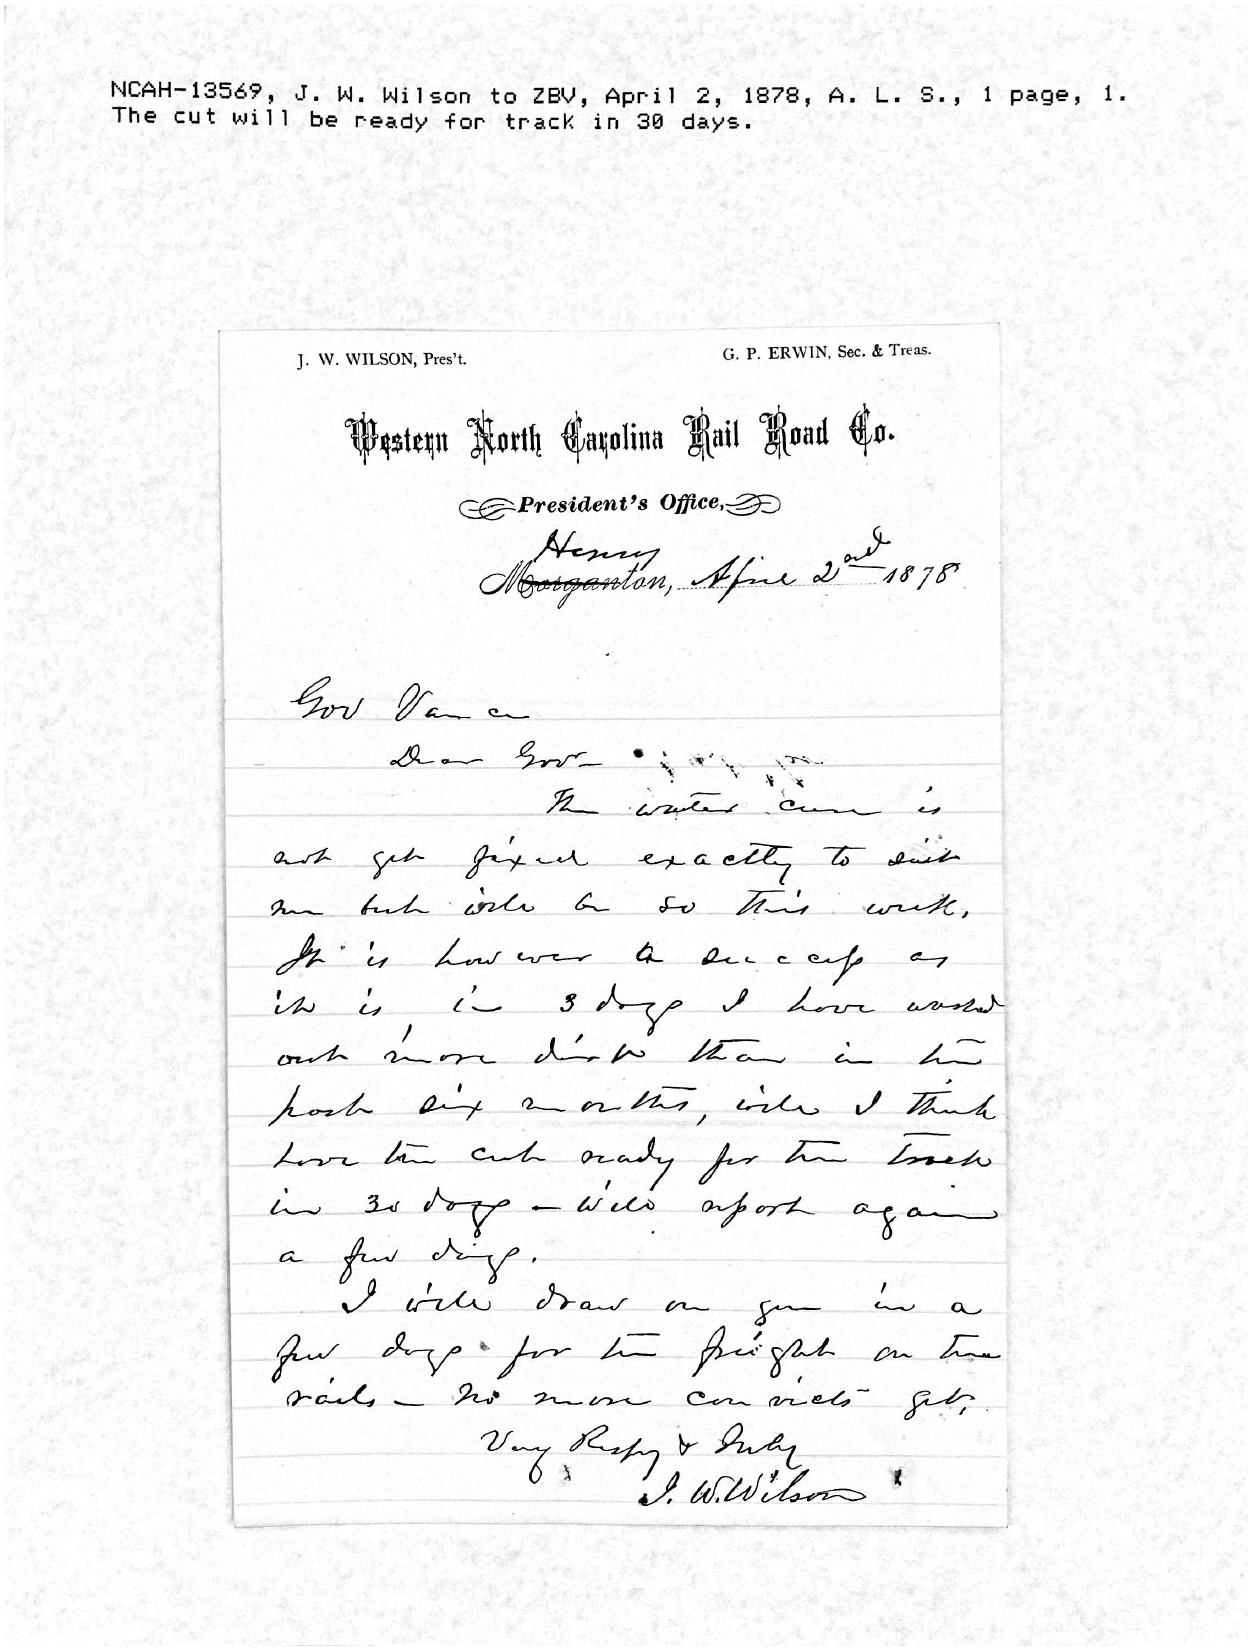 NCAH-13569, J. W. Wilson to ZBV, April 2, 1878, A. L. S., 1 page, 1.
The cut will be ready for track in 30 days.
J. W. WILSON, Pres't. G. P. ERWIN, Sec. & Treas.
Western North Carolina Rail Road Co.
President's Office,
Henry
Morganton, April 2nd 1878
Gov Vance
Dear Gov-
The water is
not yet fixed exactly to suit
me but will be so this week.
It is however a success as
it is, in 3 days I have washed
out more dirt than in the
past six months, will I think
have the cut ready for the track
in 30 days - Will report again
a few days.
I will draw on you in a
few days for the freight on the
rails - No more convicts yet,
Very Respy & Truly
J. W. Wilson